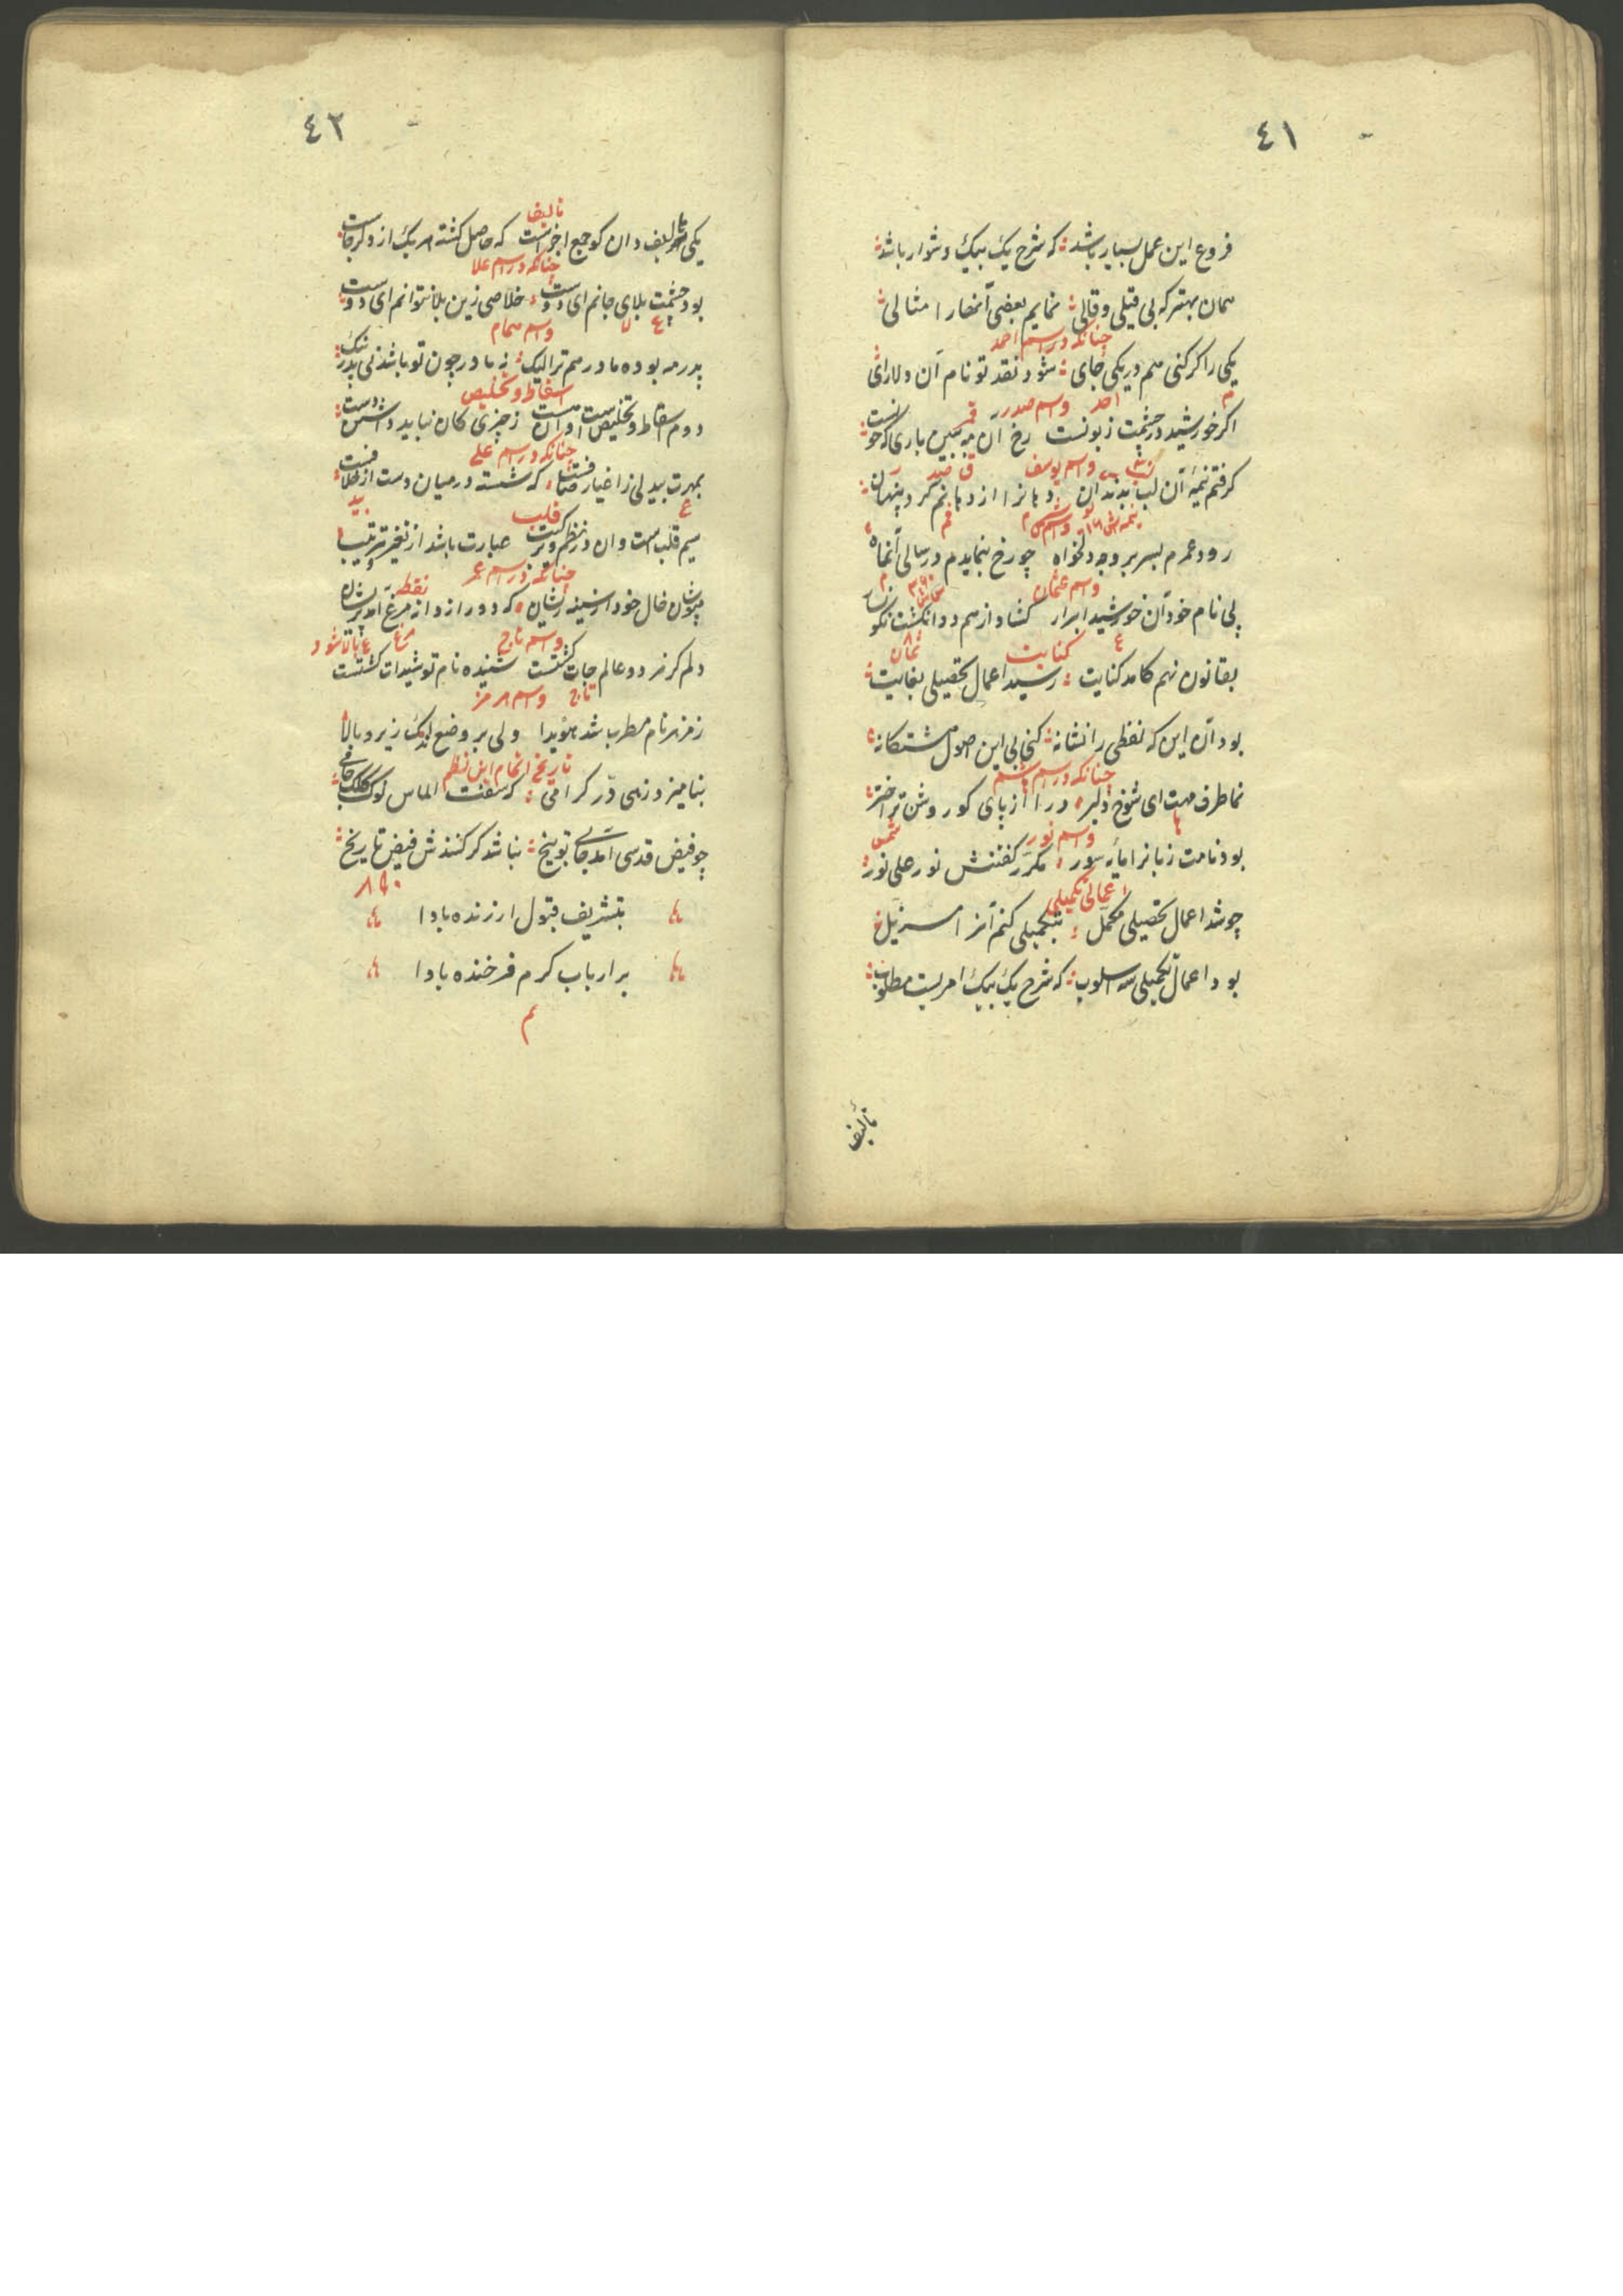 ٤١
فروع این عمل بسیار باشد که شرح یک بیک دشوار باشد
همان بهتر که بی قیلی و قالی نمایم بعضی آنها را مثالی
چنانکه در اسم احمد
یکی را کر کنی هم در یکی جای شود نقد تو نام آن دلارای
احد واسم صدر
اکر خورشید در چشمت زبونست رخ آن مه ببین باری که چونست
واسم یوسف
کرفتم نیمهٔ آن لب بدندان دهانرا از دهانم کرد پنهان
رود عمرم بسر بر وجه دلخواه چو رخ بنمایدم در سالی آنماه
واسم عثمان
پی نام خود آن خورشید ابرار کشاد از هم دو انکشت نکو
کنایت
بقانون نهم کامد کنایت رسید اعمال تحصیلی بغایت
بود آن این که لفظی را نشانه کنی بی این اصول هشتکانه
چنانکه در اسم هاشم
نما طرف مهت ای شوخ دلبر درا از پای کو روشن تر اختر
واسم نور
بود نامت زبانرا مایهٔ سور مکرر کفتنش نور علی نور
اعمال تکمیلی
چو شد اعمال تحصیلی مکمل بتکمیلی کنم آنرا مسزیل
بود اعمال تکمیلی سه اسلوب که شرح یک بیک امریست مطلوب
تألیف
٤٢
تألیف
یکی تألیف و ان کو جمع اجزاست که حاصل کشته هر یک از دکر جاست
چنانکه در اسم علا
بود چشمت بلای جانم ای دوست خلاصی زین بلا نتوانم ای دوست
واسم همام
پدر مه بوده مادر هم ترا لیک ز مادر چون تو باشد بی پدر نیک
اسقاط و تخلیص
دوم اسقاط و تخلیص است او آن است ز چیزی کان نباید داشتن دست
چنانکه در اسم علی
بمهرت بیدلی ز اغیار صافست که شسته در میان دست از خلافست
قلب
سیم قلب است و ان در نظم و ترکیب عبارت باشد از تغییر ترتیب
چنانکه در اسم عمر
نقطه
مپوشان خال خود از سینه ریشان که دور از دانه مرغ آمد پریشان
واسم تاج
دلم کر نرد دو عالم جات کشتست شنیده نام تو شیدات کشتست
تاج واسم هرمز
ز مزهر نام مطرب شد هویدا ولی بر وضع اندک زیر و بالا
تاریخ اتمام این نظم
بنامیزد زهی در کرامی که سفت الماس نوک کلک جامی
چو فیض قدسی آمد جای توبیخ نباشد کر کنندش فیض تاریخ
٨٩٠
بتشریف قبول ارزنده بادا
بر ارباب کرم فرخنده بادا
م